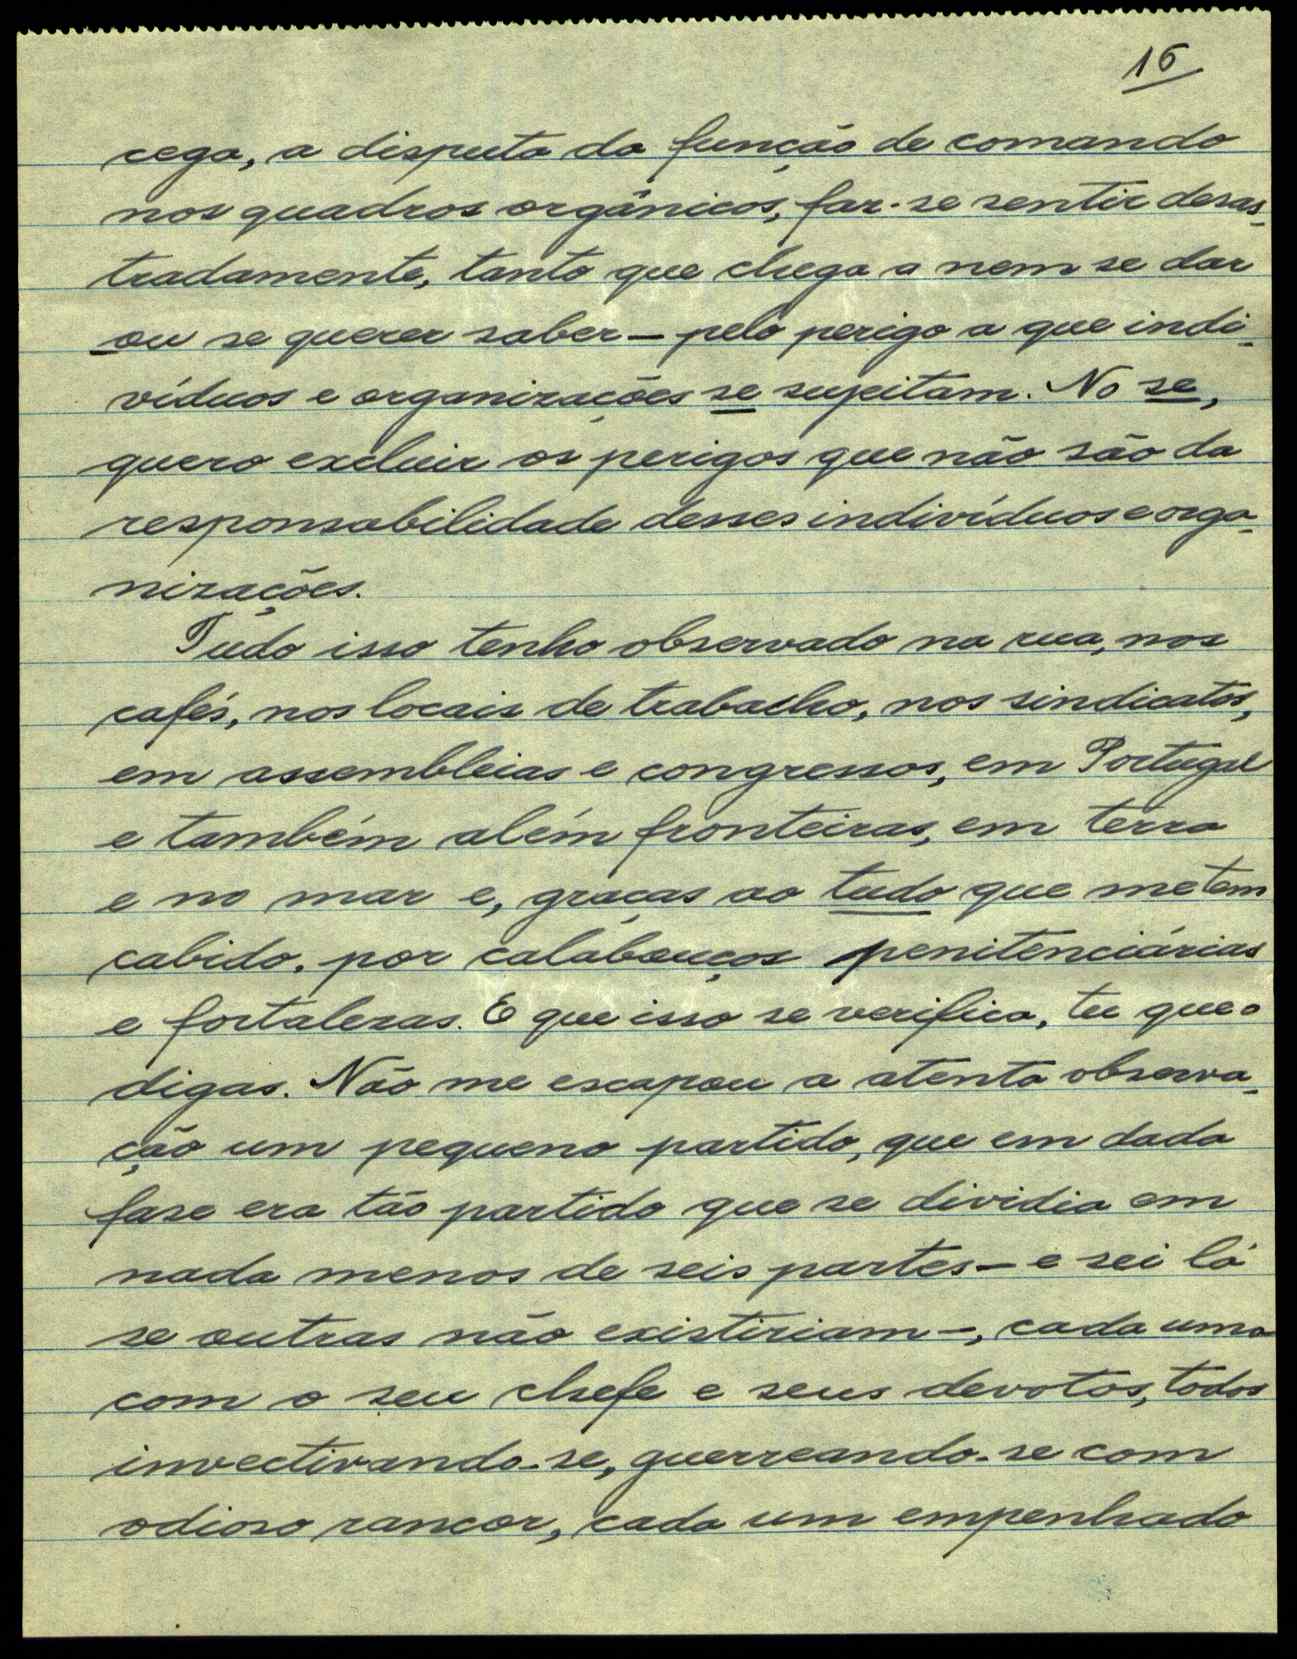 16
cega, a disputa da função de comando
nos quadros orgânicos, faz-se sentir desas-
tradamente, tanto que chega a nem se dar
ou se querer saber — pelo perigo a que indi-
víduos e organizações se sujeitam. No se,
quero excluir os perigos que não são da
responsabilidade desses indivíduos e orga-
nizações.
Tudo isso tenho observado na rua, nos
cafés, nos locais de trabalho, nos sindicatos,
em assembleias e congressos, em Portugal
e também além fronteiras, em terra
e no mar e, graças ao tudo que me tem
cabido, por calabouços penitenciárias
e fortalezas. E que isso se verifica, tu que o
digas. Não me escapou a atenta observa-
ção um pequeno partido, que em dada
fase era tão partido que se dividia em
nada menos de seis partes — e sei lá
se outras não existiriam —, cada uma
com o seu chefe e seus devotos, todos
invectivando-se, guerreando-se com
odioso rancor, cada um empenhado